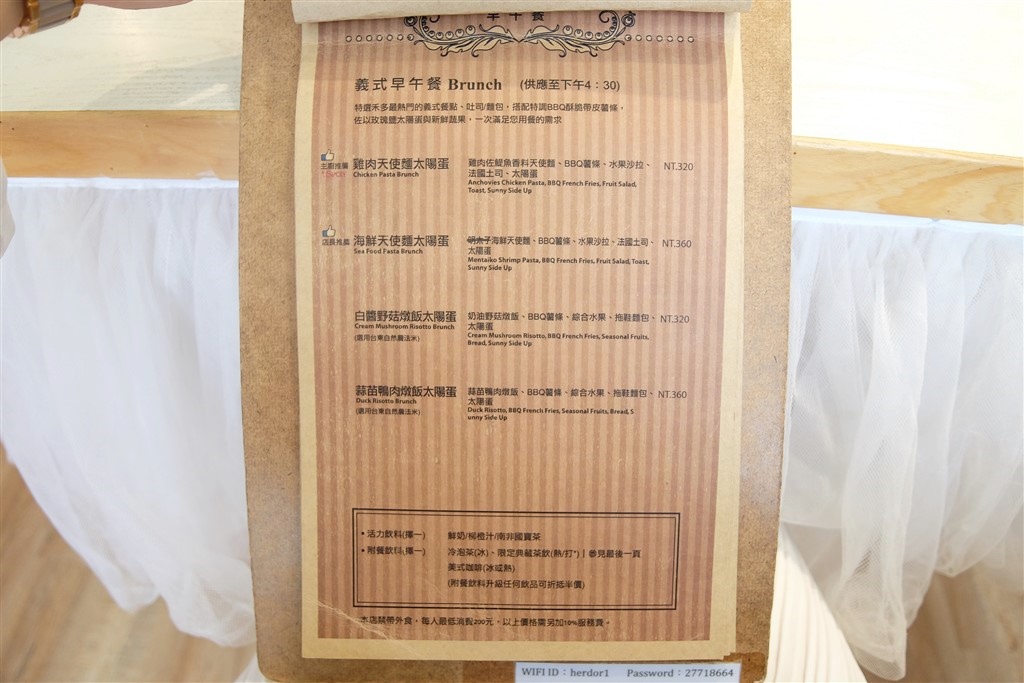 早午餐
義式早午餐 Brunch (供應至下午4：30)
特選禾多最熱門的義式餐點、吐司/麵包，搭配特調BBQ酥脆帶皮薯條，
佐以玫瑰鹽太陽蛋與新鮮蔬果，一次滿足您用餐的需求
主廚推薦 雞肉天使麵太陽蛋 雞肉佐鯷魚香料天使麵、BBQ薯條、水果沙拉、 NT.320
Chicken Pasta Brunch 法國土司、太陽蛋
Anchovies Chicken Pasta, BBQ French Fries, Fruit Salad,
Toast, Sunny Side Up
店長推薦 海鮮天使麵太陽蛋 明太子海鮮天使麵、BBQ薯條、水果沙拉、法國土司、 NT.360
Sea Food Pasta Brunch 太陽蛋
Mentaiko Shrimp Pasta, BBQ French Fries, Fruit Salad, Toast,
Sunny Side Up
白醬野菇燉飯太陽蛋 奶油野菇燉飯、BBQ薯條、綜合水果、拖鞋麵包、 NT.320
Cream Mushroom Risotto Brunch 太陽蛋
(選用台東自然農法米) Cream Mushroom Risotto, BBQ French Fries, Seasonal Fruits,
Bread, Sunny Side Up
蒜苗鴨肉燉飯太陽蛋 蒜苗鴨肉燉飯、BBQ薯條、綜合水果、拖鞋麵包、 NT.360
Duck Risotto Brunch 太陽蛋
(選用台東自然農法米) Duck Risotto, BBQ French Fries, Seasonal Fruits, Bread, S
unny Side Up
• 活力飲料(擇一) 鮮奶/柳橙汁/南非國寶茶
• 附餐飲料(擇一) 冷泡茶(冰)、限定典藏茶飲(熱/打*)｜參見最後一頁
美式咖啡(冰或熱)
(附餐飲料升級任何飲品可折抵半價)
本店禁帶外食，每人最低消費200元。以上價格需另加10%服務費。
WIFI ID：herdor1 Password：27718664